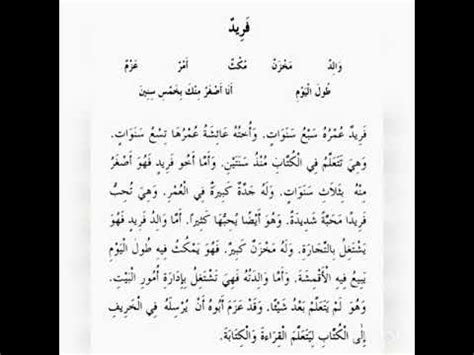 فَرِيدٌ
وَالِدٌ مَخْزَنٌ مُكْثٌ أَمْرٌ عَزْمٌ
طُولَ الْيَوْمِ أَنَا أَصْغَرُ مِنْكَ بِخَمْسِ سِنِينَ
فَرِيدٌ عُمْرُهُ سَبْعُ سَنَوَاتٍ. وَأُخْتُهُ عَائِشَةُ عُمْرُهَا تِسْعُ سَنَوَاتٍ.
وَهِيَ تَتَعَلَّمُ فِي الْكُتَّابِ مُنْذُ سَنَتَيْنِ. وَأَمَّا أَخُو فَرِيدٍ فَهُوَ أَصْغَرُ
مِنْهُ بِثَلَاثِ سَنَوَاتٍ. وَلَهُ جَدَّةٌ كَبِيرَةٌ فِي الْعُمْرِ. وَهِيَ تُحِبُّ
فَرِيدًا مَحَبَّةً شَدِيدَةً. وَهُوَ أَيْضًا يُحِبُّهَا كَثِيرًا. أَمَّا وَالِدُ فَرِيدٍ فَهُوَ
يَشْتَغِلُ بِالتِّجَارَةِ. وَلَهُ مَخْزَنٌ كَبِيرٌ. فَهُوَ يَمْكُثُ فِيهِ طُولَ الْيَوْمِ
يَبِيعُ فِيهِ الْأَقْمِشَةَ. وَأَمَّا وَالِدَتُهُ فَهِيَ تَشْتَغِلُ بِإِدَارَةِ أُمُورِ الْبَيْتِ.
وَهُوَ لَمْ يَتَعَلَّمْ بَعْدُ شَيْئًا. وَقَدْ عَزَمَ أَبُوهُ أَنْ يُرْسِلَهُ فِي الْخَرِيفِ
إِلَى الْكُتَّابِ لِيَتَعَلَّمَ الْقِرَاءَةَ وَالْكِتَابَةَ.